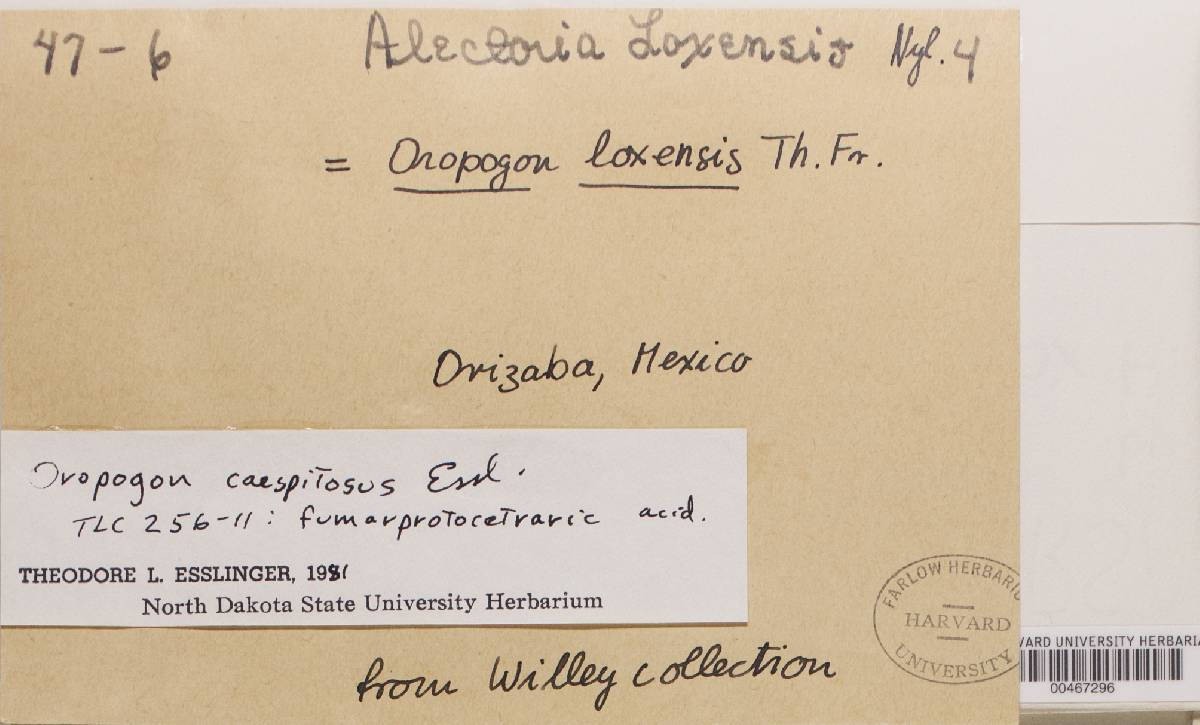 47-6 Alectoria Loxensis Nyl. 4
= Oropogon loxensis Th. Fr.
Orizaba, Mexico
Oropogon caespitosus Essl.
TLC 256-11: fumarprotocetraric acid.
THEODORE L. ESSLINGER, 1981
North Dakota State University Herbarium
FARLOW HERBARIU
HARVARD
UNIVERSITY
from Willey collection
VARD UNIVERSITY HERBARIA
00467296